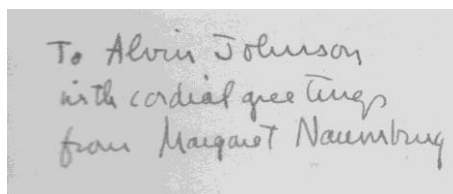 To Alvin Johnson
with cordial greetings
from Margaret Naumburg